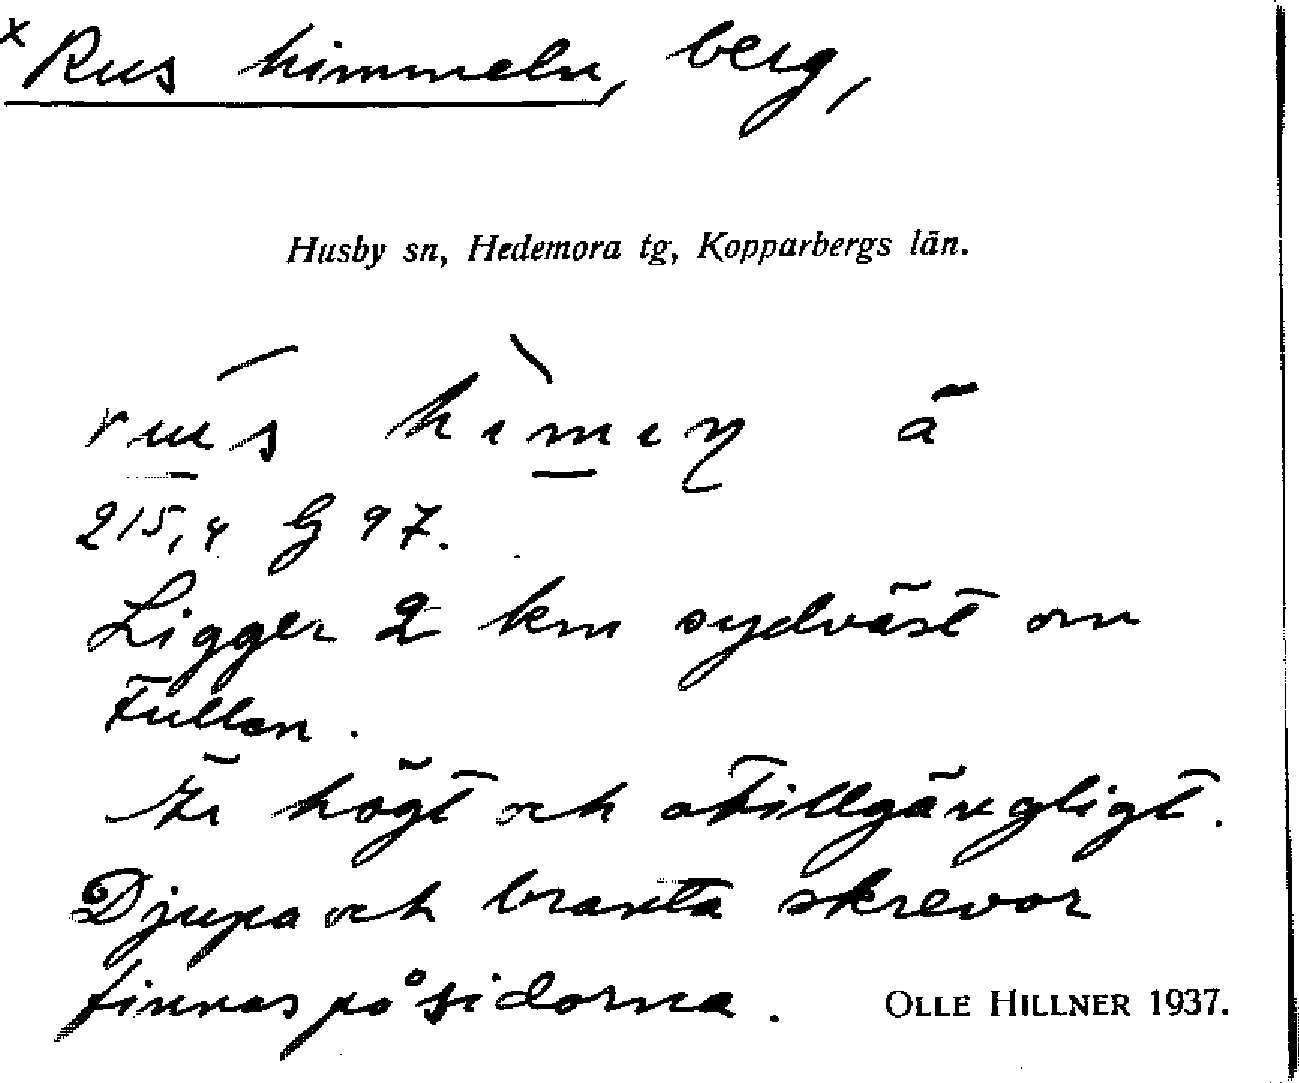 x Rus himmeln, berg,
Husby sn, Hedemora tg, Kopparbergs län.
ä
215,4 G 97.
Ligger 2 km sydväst om
Fullan.
Är högt och otillgängligt.
Djupa och branta skrevor
finnas på sidorna. OLLE HILLNER 1937.